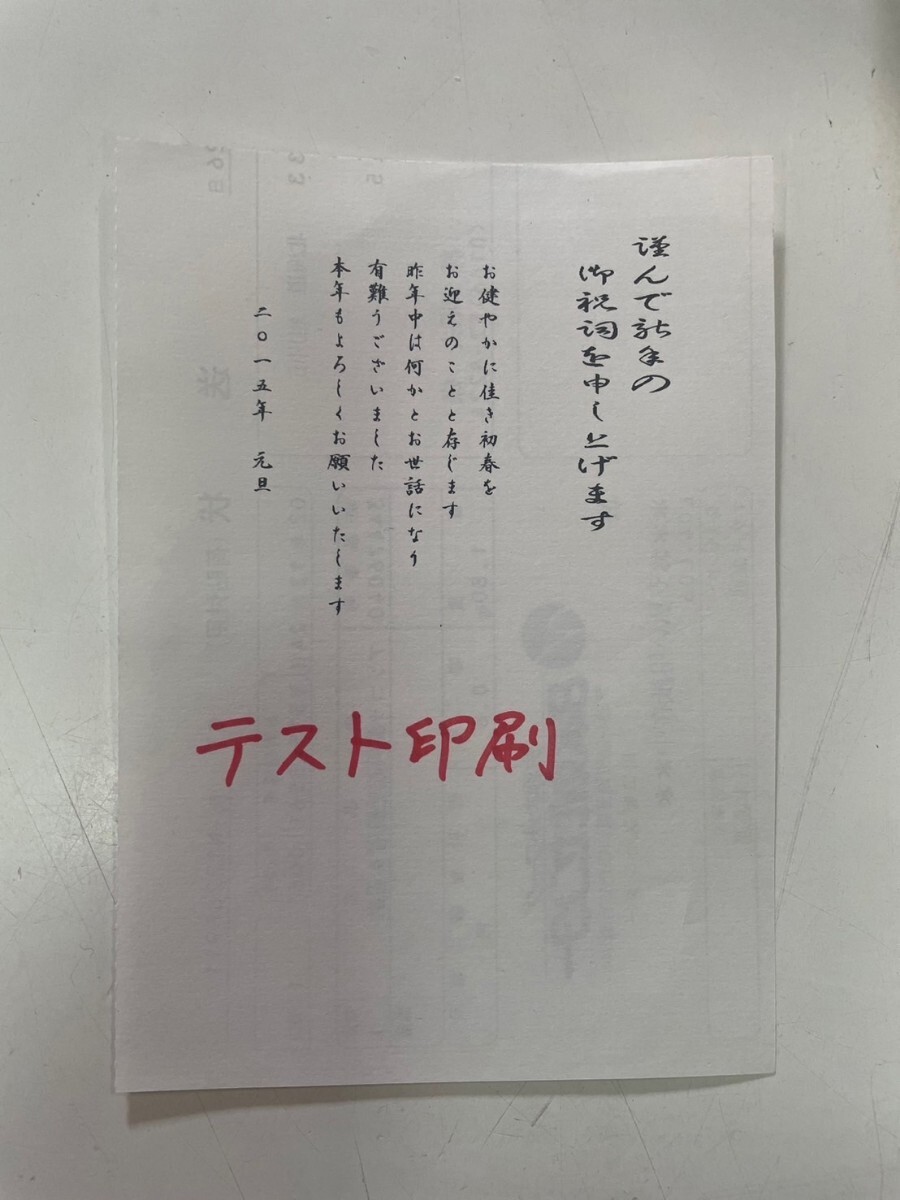 謹んで新年の
御祝詞を申し上げます
お健やかに佳き初春を
お迎えのことと存じます
昨年中は何かとお世話になり
有難うございました
本年もよろしくお願いいたします
二〇一五年 元旦
テスト印刷